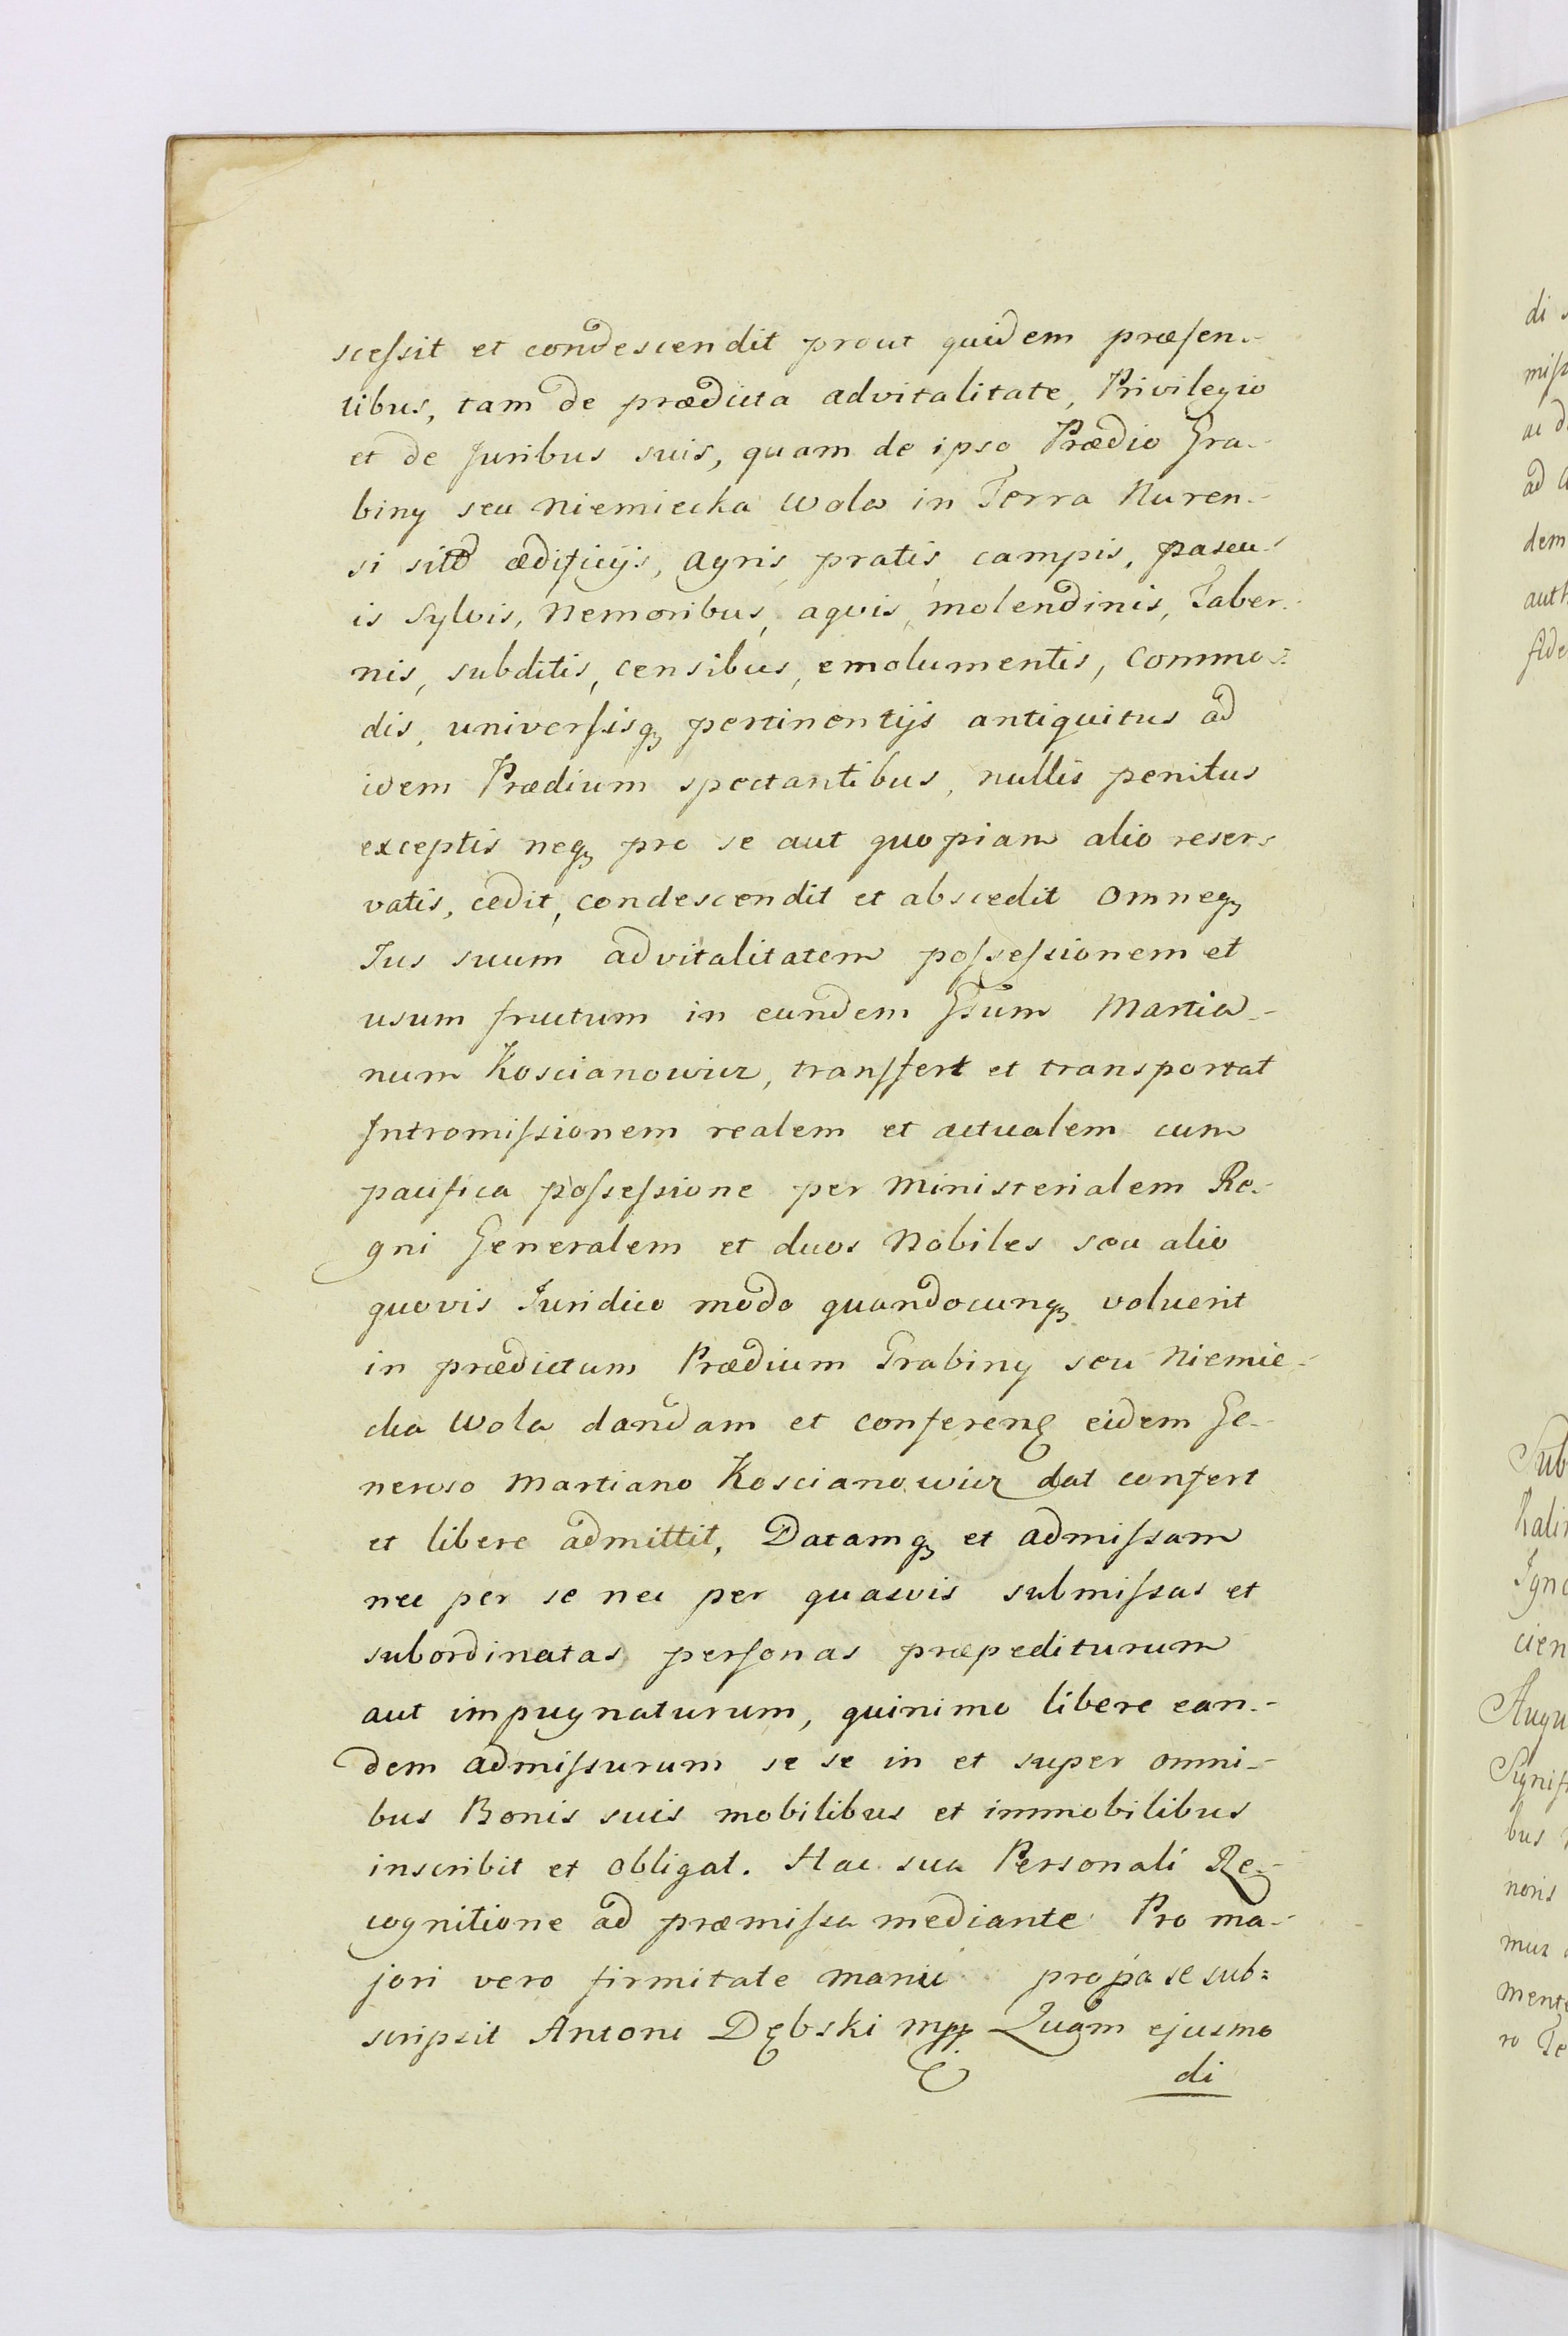 scessit et condescendit prout quidem præsen-
tibus, tam de prædicta advitalitate, Privilegio
et de Juribus suis, quam de ipso Prædio Gra-
biny seu Niemiecka Wola in Terra Nuren-
si sito ædificijs, agris pratis campis, pascu-
is Sylvis, Nemoribus, aquis, molendinis, Taber-
nis, subditis, censibus, emolumentis, Commo-
dis, universisq3 pertinentijs antiquitus ad
idem Prædium spectantibus, nullis penitus
exceptis neq3 pro se aut quopiam alio reser-
vatis, cedit, condescendit et abscedit omneq3
Jus suum advitalitatem possessionem et
usum fructum in eundem Gsum Martia-
num Koscianowicz, transfert et transportat
Intromissionem realem et actualem cum
pacifica possessione per Ministerialem Re-
gni Generalem et duos Nobiles seu alio
quovis Juridico modo quandocunq3 voluerit
in prædictum Prædium Grabiny seu Niemie-
cka Wola dandam et conferen eidem Ge-
neroso Martiano Koscianowicz dat confert
et libere admittit, Datamq3 et admissam
nec per se nec per quasvis submissas et
subordinatas personas præpediturum
aut impugnaturum, quinimo libere ean-
dem admissurum se se in et super omni-
bus Bonis suis mobilibus et immobilibus
inscribit et obligat. Hac sua Personali Re-
cognitione ad præmissa mediante Pro ma-
jori vero firmitate manu propa se sub=
scripsit Antoni Dębski mpp Quam ejusmo
di